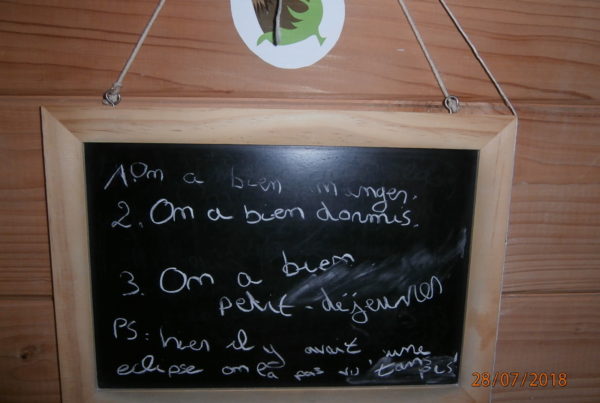 1. On a bien manger.
2. On a bien dormis.
3. On a bien
petit-déjeuner
PS: hier il y avait une
eclipse on l'a pas vu, tanpis!
28/07/2018